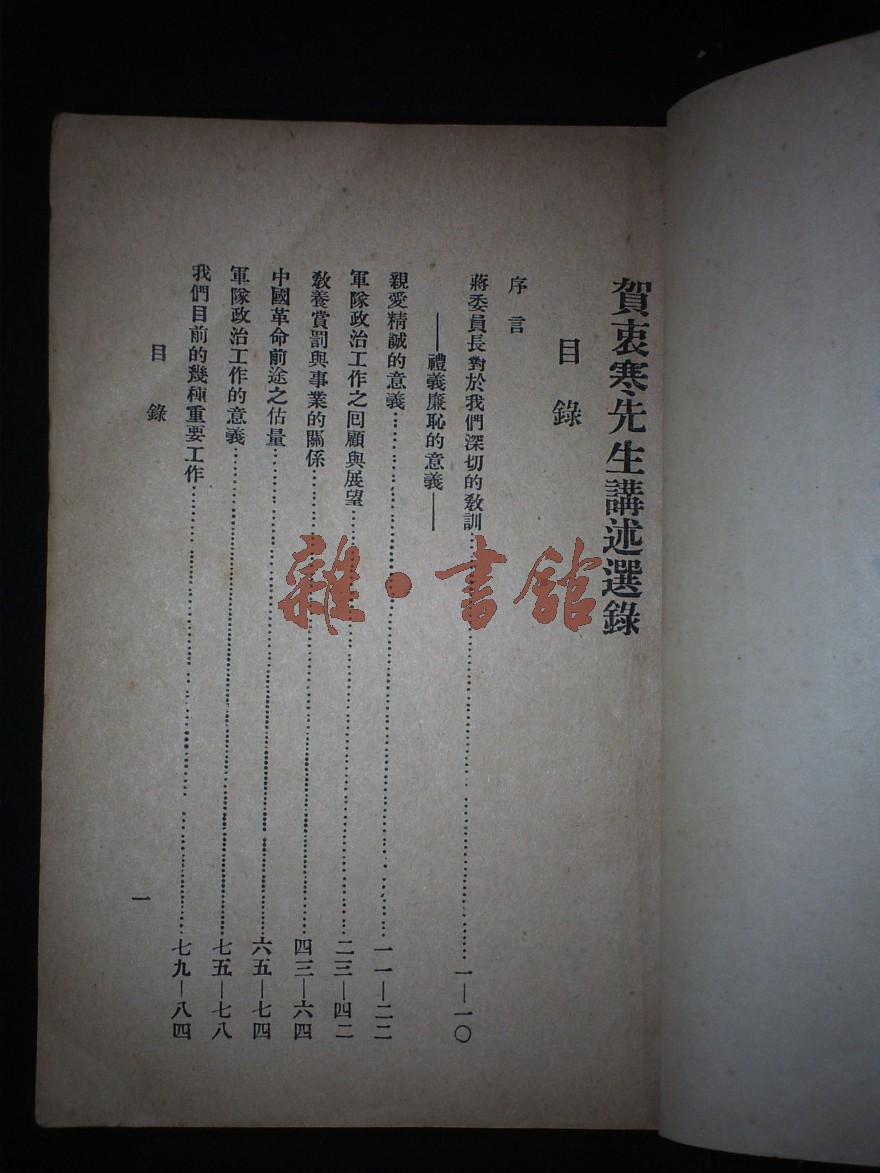 賀衷寒先生講述選錄
目錄
序言
蔣委員長對於我們深切的教訓⋯⋯一—一〇
——禮義廉恥的意義——
親愛精誠的意義⋯⋯一一—二二
軍隊政治工作之回顧與展望⋯⋯二三—四二
教養賞罰與事業的關係⋯⋯四三—六四
中國革命前途之估量⋯⋯六五—七四
軍隊政治工作的意義⋯⋯七五—七八
我們目前的幾種重要工作⋯⋯七九—八四
目錄
一
雜·書館